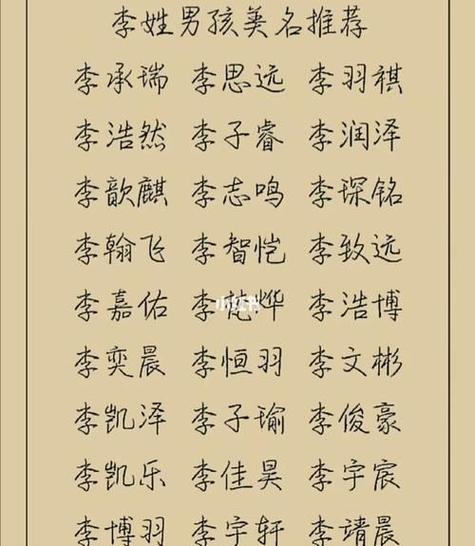 李姓男孩美名推荐
李承瑞 李思远 李羽祺
李浩然 李子睿 李润泽
李歆麒 李志鸣 李琛铭
李翰飞 李智恺 李致远
李嘉佑 李 烨 李浩博
小红书
李奕晨 李恒羽 李文彬
李凯泽 李子瑜 李俊豪
李凯乐 李佳昊 李宇宸
李博羽 李宇轩 李靖晨